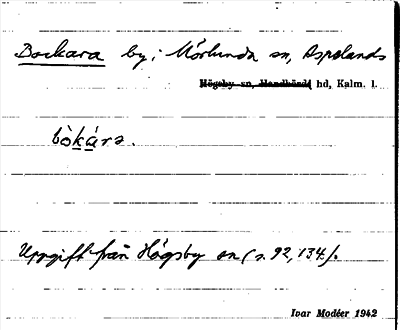 Bockara by i Mörlunda sn, Aspelands
Högsby sn, Handbörds hd, Kalm. l.
bòkára.
Uppgift från Högsby sn (s. 92, 134).
Ivar Modéer 1942